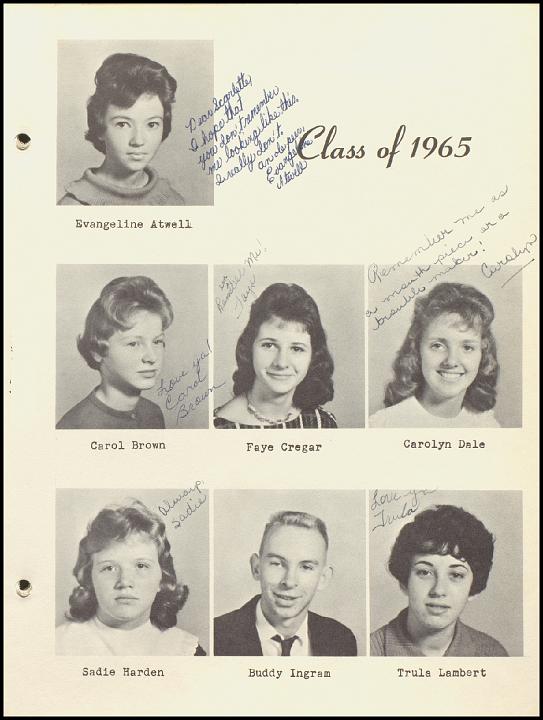 Dear Scarlette,
I hope that
you don't remember
me looking like this.
I really don't.
Evangeline
Atwell
Class of 1965
Evangeline Atwell
Remember me as
a mouth piece or a
trouble maker!
Carolyn
Remember Me!
Faye
Love ya!
Carol
Brown
Carol Brown
Faye Cregar
Carolyn Dale
Always,
Sadie
Love ya
Trula
Sadie Harden
Buddy Ingram
Trula Lambert